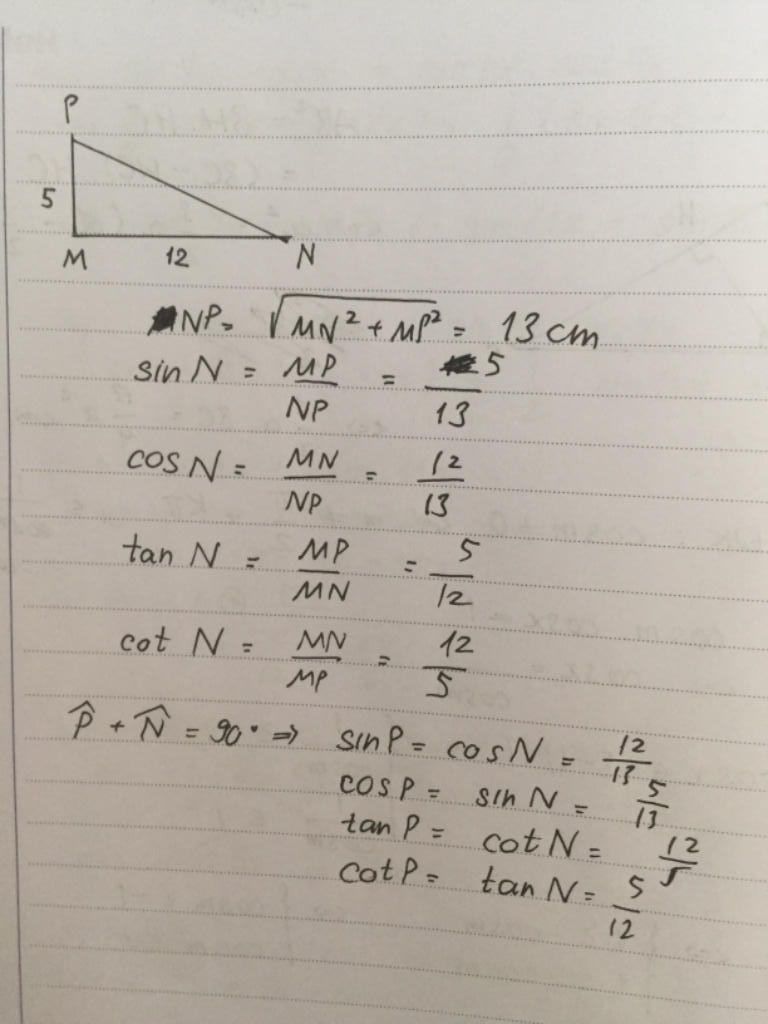 P
5
M 12 N
NP = √(MN² + MP²) = 13 cm
sin N = MP/NP = 5/13
cos N = MN/NP = 12/13
tan N = MP/MN = 5/12
cot N = MN/MP = 12/5
P̂ + N̂ = 90° ⇒ sin P = cos N = 12/13
cos P = sin N = 5/13
tan P = cot N = 12/5
cot P = tan N = 5/12